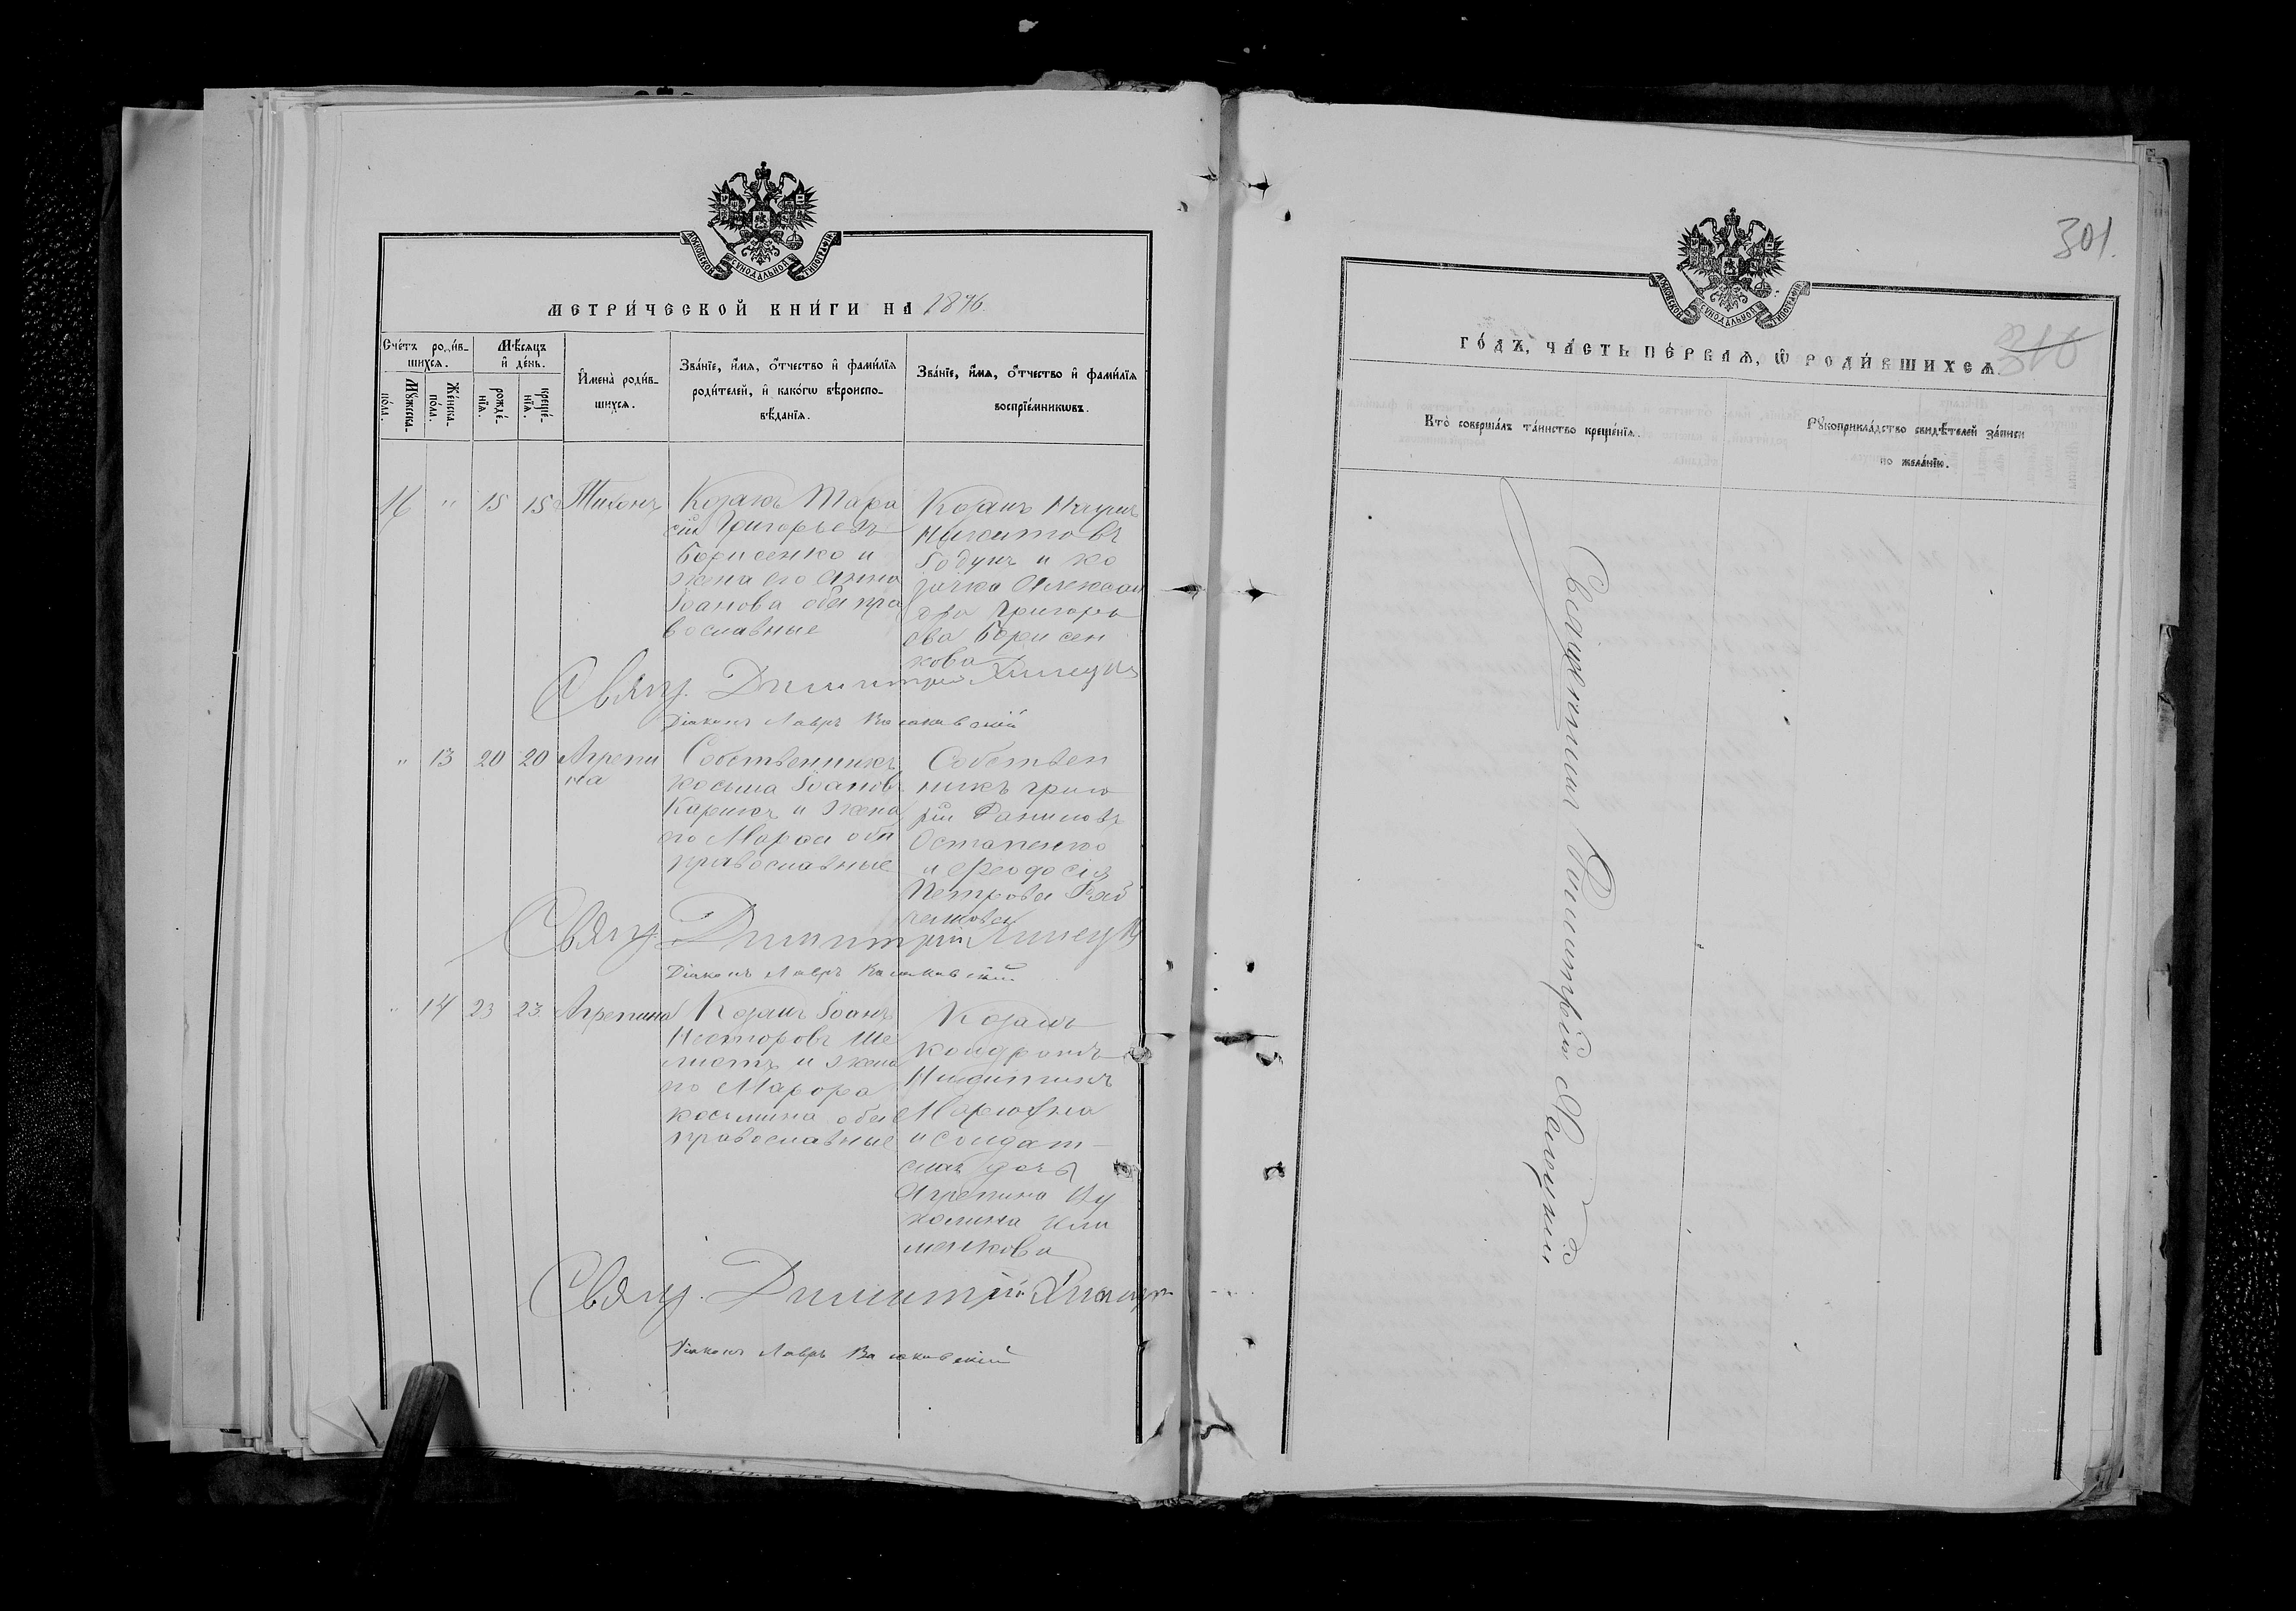 МОСКОВСКОЙ СѴНОДАЛЬНОЙ ТИПОГРАФІИ
МЕТРИ́ЧЕСКОЙ КНИ́ГИ НА 1876
Сче́тъ роди́в-
шихся.
Мꙋ́жеска-
по́ла.
Же́нска-
по́ла.
Мѣ́сяцъ
и҆ де́нь.
рожде́-
нїѧ.
креще́-
нїѧ.
И҆мена̀ роди́в-
шихсѧ.
Зва́нїе, и҆́мѧ, ѻ҆́тчество и҆ фами́лїѧ
роди́телей, и҆ како́гѡ вѣроиспо-
вѣ́данїѧ.
Зва́нїе, и҆́мѧ, ѻ҆́тчество и҆ фами́лїѧ
воспрїе́мникѡвъ.
16 " 15 15 Тихонъ
Козакъ Тара
сій Григорьевъ
Борисенко и
жена его Анна
Іоанова оба пра
вославные
Козакъ Наумъ
Никитовъ
Годунъ и ко
зачка Алексан
дра Григорь
ева Борисен
кова
Свящ. Димитрій
Діаконъ Лавръ
" 13 20 20 Агрепи
на
Собственникъ
Косьма Іоановъ
и жена
его Марфа оба
православные
Собствен
никъ Григо
рій Даниловъ
Остапенко
и Феодосія
Петрова
Свящ. Димитрій
Діаконъ Лавръ
" 14 23 23 Агрепина
Козакъ Іоанъ
Несторовъ Ше
листъ и жена
его Марфа
Косьмина оба
православные
Козакъ
Кондратъ
Никитинъ
и солдат-
ская дочь
Агрепина
Кли
менкова
Свящ. Димитрій
Діаконъ Лавръ
301.
310
МОСКОВСКОЙ СѴНОДАЛЬНОЙ ТИПОГРАФІИ
ГО́ДЪ, ЧА́СТЬ ПЕ́РВАѦ, Ѽ РОДИ́ВШИХСѦ
Кто̀ соверша́лъ та́инство креще́нїѧ.
Рꙋкоприкла́дство свидѣ́телей за́писи
по жела́нїю.
Священникъ Димитрій